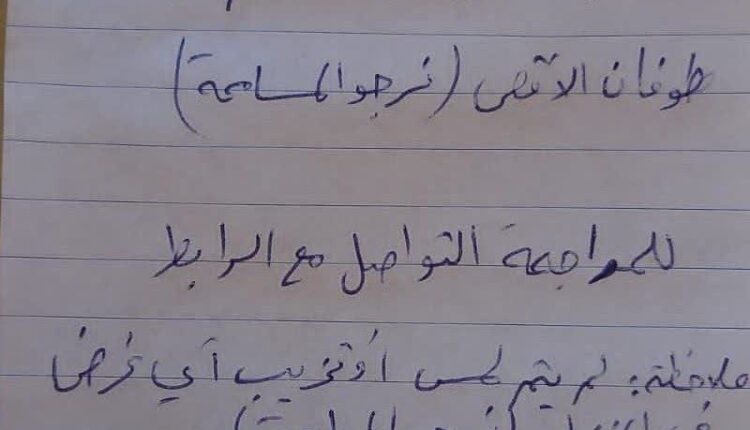 طوفان الاقصى (نرجو المسامحة)
للمراجعة التواصل مع الرابط
ملاحظة: لم يتم لمس أو تخريب أي غرض